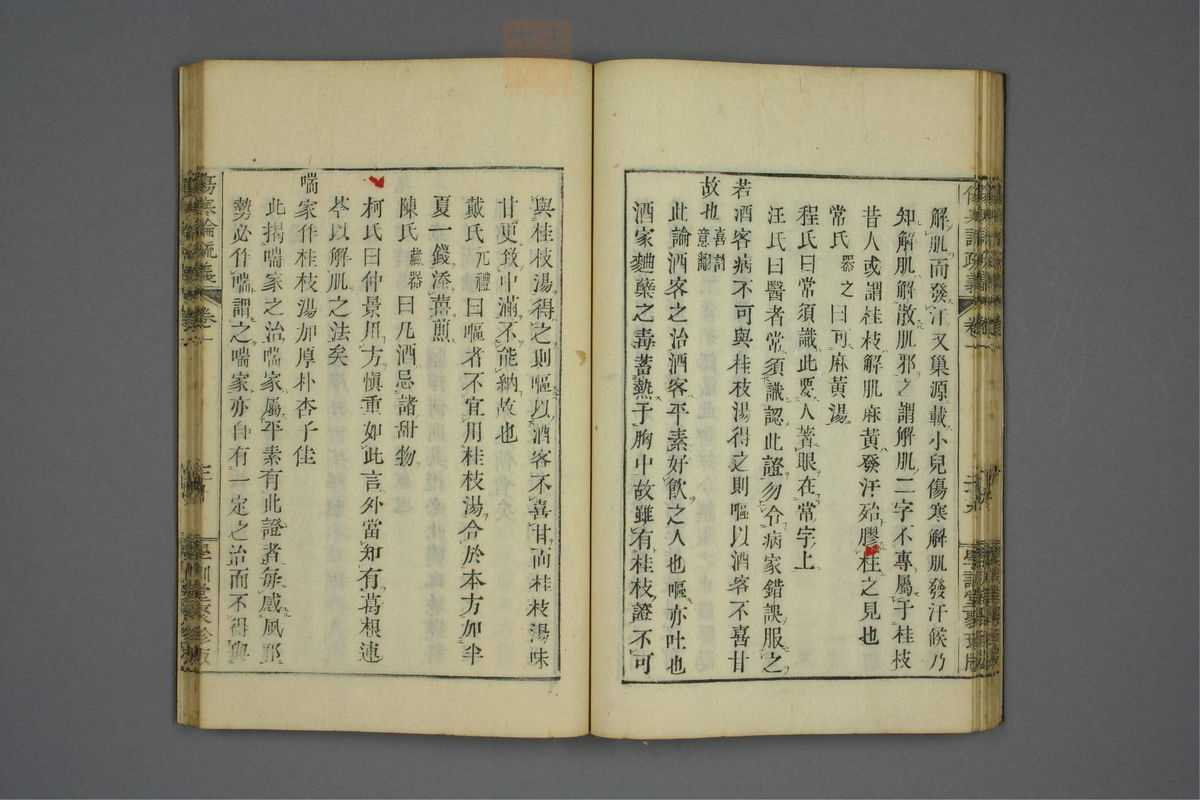 解肌而發汗又巢源載小兒傷寒解肌發汗候乃
知解肌解散肌邪之謂解肌二字不專屬于桂枝
昔人或謂桂枝解肌麻黃發汗殆膠桂之見也
常氏器之曰可麻黃湯
程氏曰常須識此要人著眼在常字上
汪氏曰醫者常須識認此證勿令病家錯誤服之
若酒客病不可與桂枝湯得之則嘔以酒客不喜甘
故也喜訓意翻
此論酒客之治酒客平素好飲之人也嘔亦吐也
酒家麯蘗之毒蓄熱于胸中故雖有桂枝證不可
與桂枝湯得之則嘔以酒客不喜甘而桂枝湯味
甘更致中滿不能納故也
戴氏元禮曰嘔者不宜用桂枝湯合於本方加半
夏一錢添薑煎
陳氏藏器曰凡酒忌諸甜物
柯氏曰仲景用方慎重如此言外當知有葛根連
芩以解肌之法矣
喘家作桂枝湯加厚朴杏子佳
此揭喘家之治喘家屬平素有此證者每感風邪
勢必作喘謂之喘家亦自有一定之治而不得與
傷寒論疏義
卷一
學訓堂聚珍版